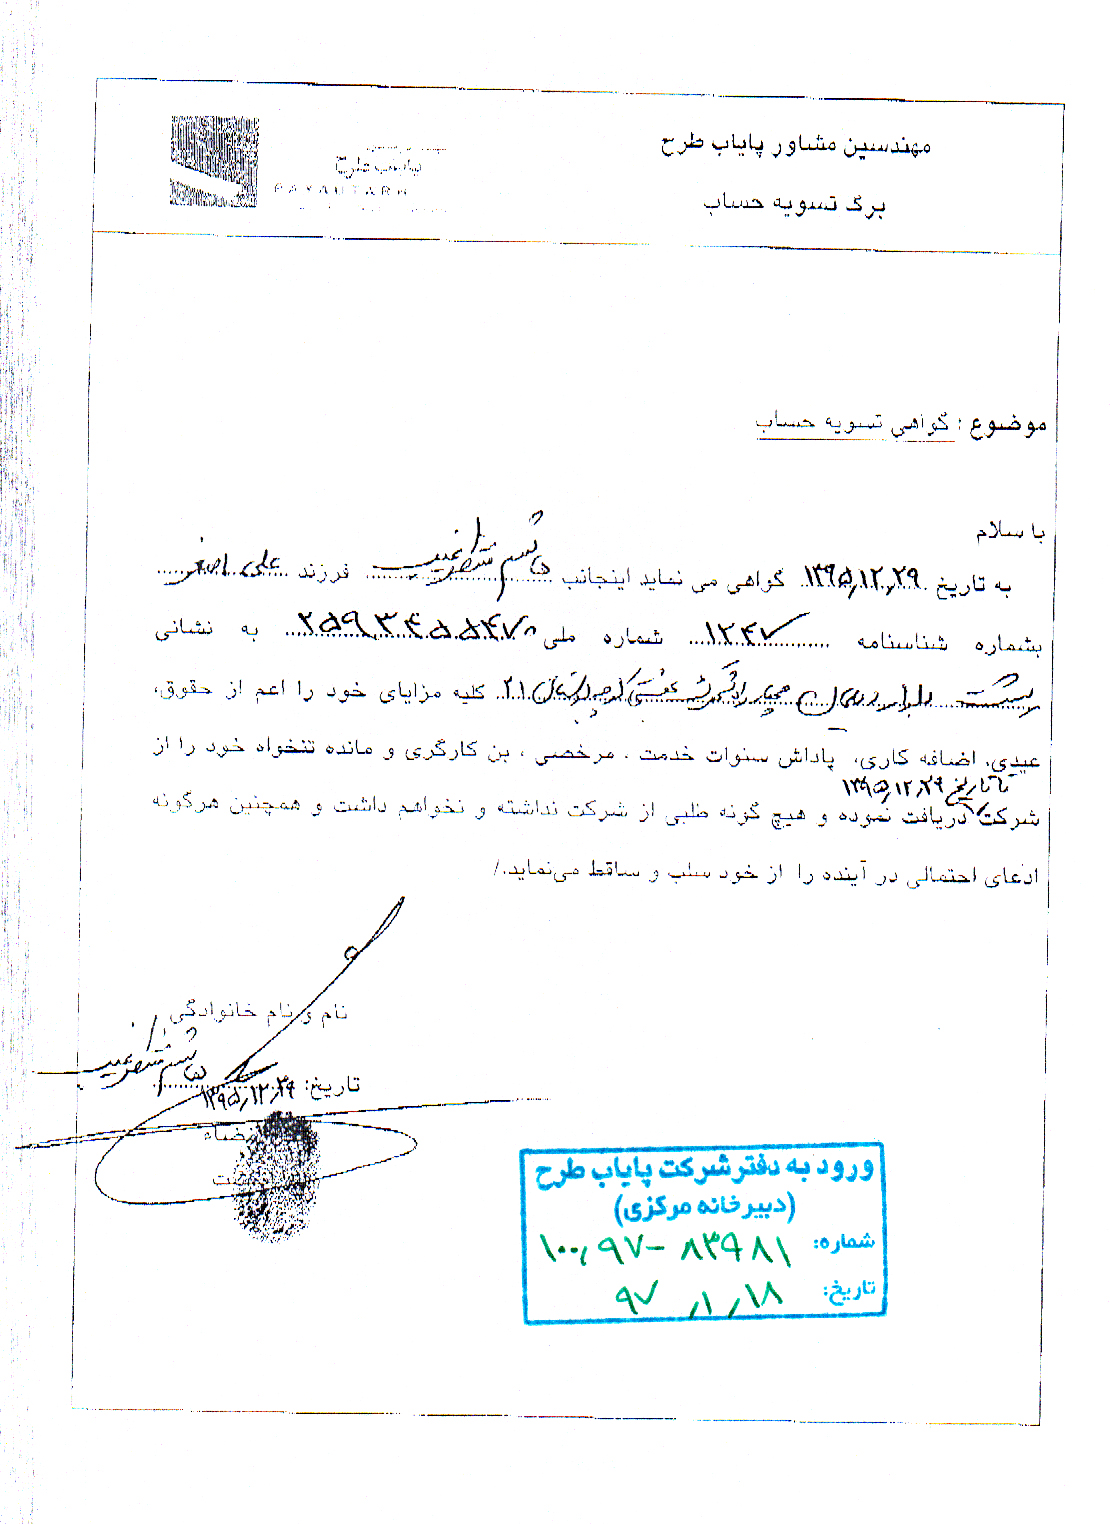 مهندسین مشاور پایاب طرح
برگ تسویه حساب
پایاب طرح
PAYABTARH
موضوع : گواهی تسویه حساب
با سلام
به تاریخ ۱۳۹۵/۱۲/۲۹ گواهی می نماید اینجانب قاسم فرزند علی اصغر
بشماره شناسنامه ۱۲۴۷ شماره ملی به نشانی
رشت کلیه مزایای خود را اعم از حقوق،
عیدی، اضافه کاری، پاداش سنوات خدمت ، مرخصی ، بن کارگری و مانده تنخواه خود را از
تا تاریخ ۱۳۹۵/۱۲/۲۹
شرکت دریافت نموده و هیچ گونه طلبی از شرکت نداشته و نخواهم داشت و همچنین هرگونه
ادعای احتمالی در آینده را از خود سلب و ساقط می‌نماید./
نام و نام خانوادگی
تاریخ: ۱۳۹۵/۱۲/۲۹
ورود به دفتر شرکت پایاب طرح
(دبیرخانه مرکزی)
شماره: ۱۰۰/۹۷-۸۳۹۸۱
تاریخ: ۹۷/۱/۱۸